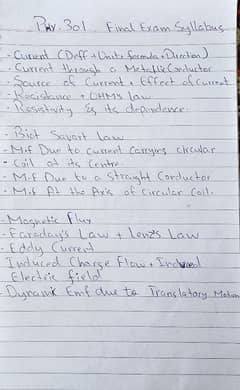 Phy. 301 Final Exam Syllabus
- Current (Deff + Unit + formula + Direction)
- Current through a Metallic Conductor
- Source of Current + Effect of Current
- Resistance + OHM's law
- Resistivity & its dependence.
- Biot Savart Law
- M.f Due to current carrying circular
- Coil at its Centre.
- M.F Due to a Straight Conductor
- M.f At the Axis of Circular Coil.
- Magnetic flux
- Faraday's Law + Lenz's Law
- Eddy Current
Induced Charge Flow + Induced
Electric field
- Dynamic Emf due to Translatory Motion